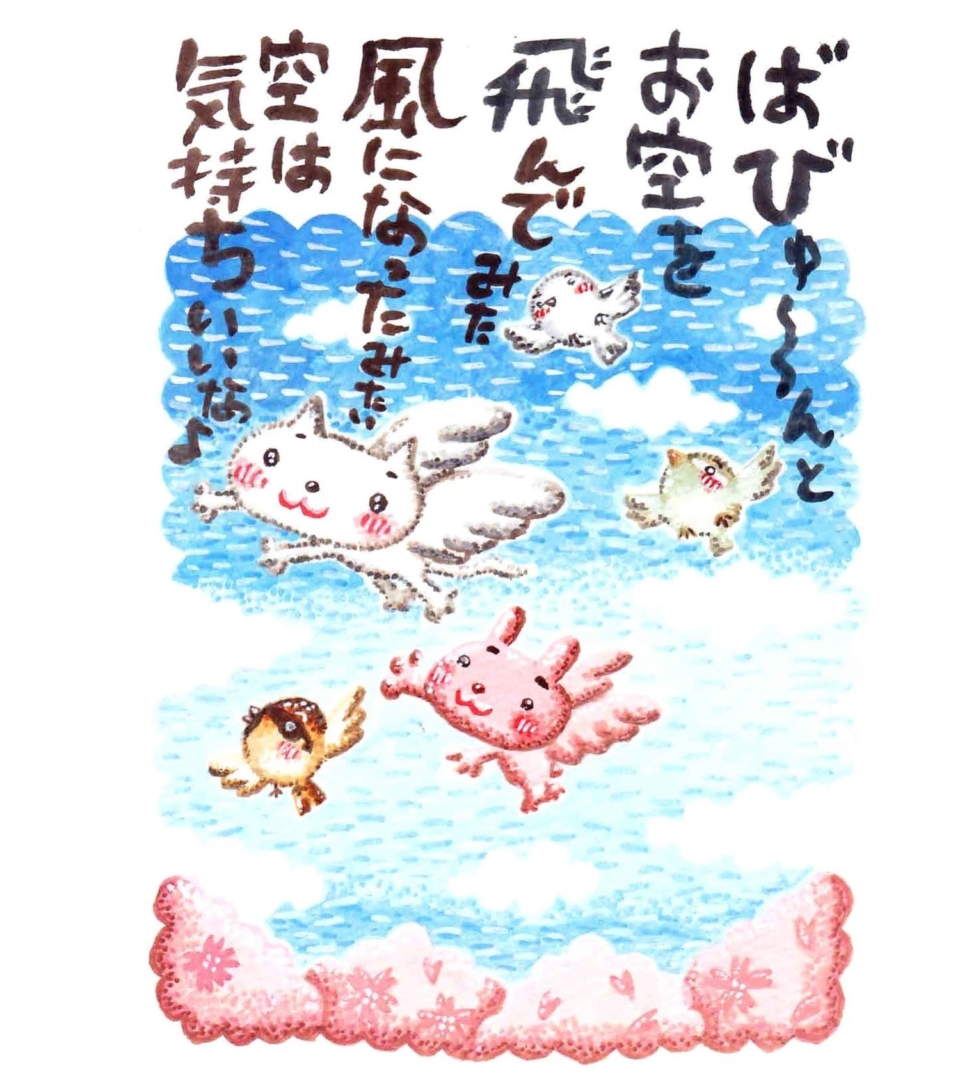 ばびゅ〜〜んと
お空を
飛んで
みた
風になったみたい
空は
気持ちいいな♪